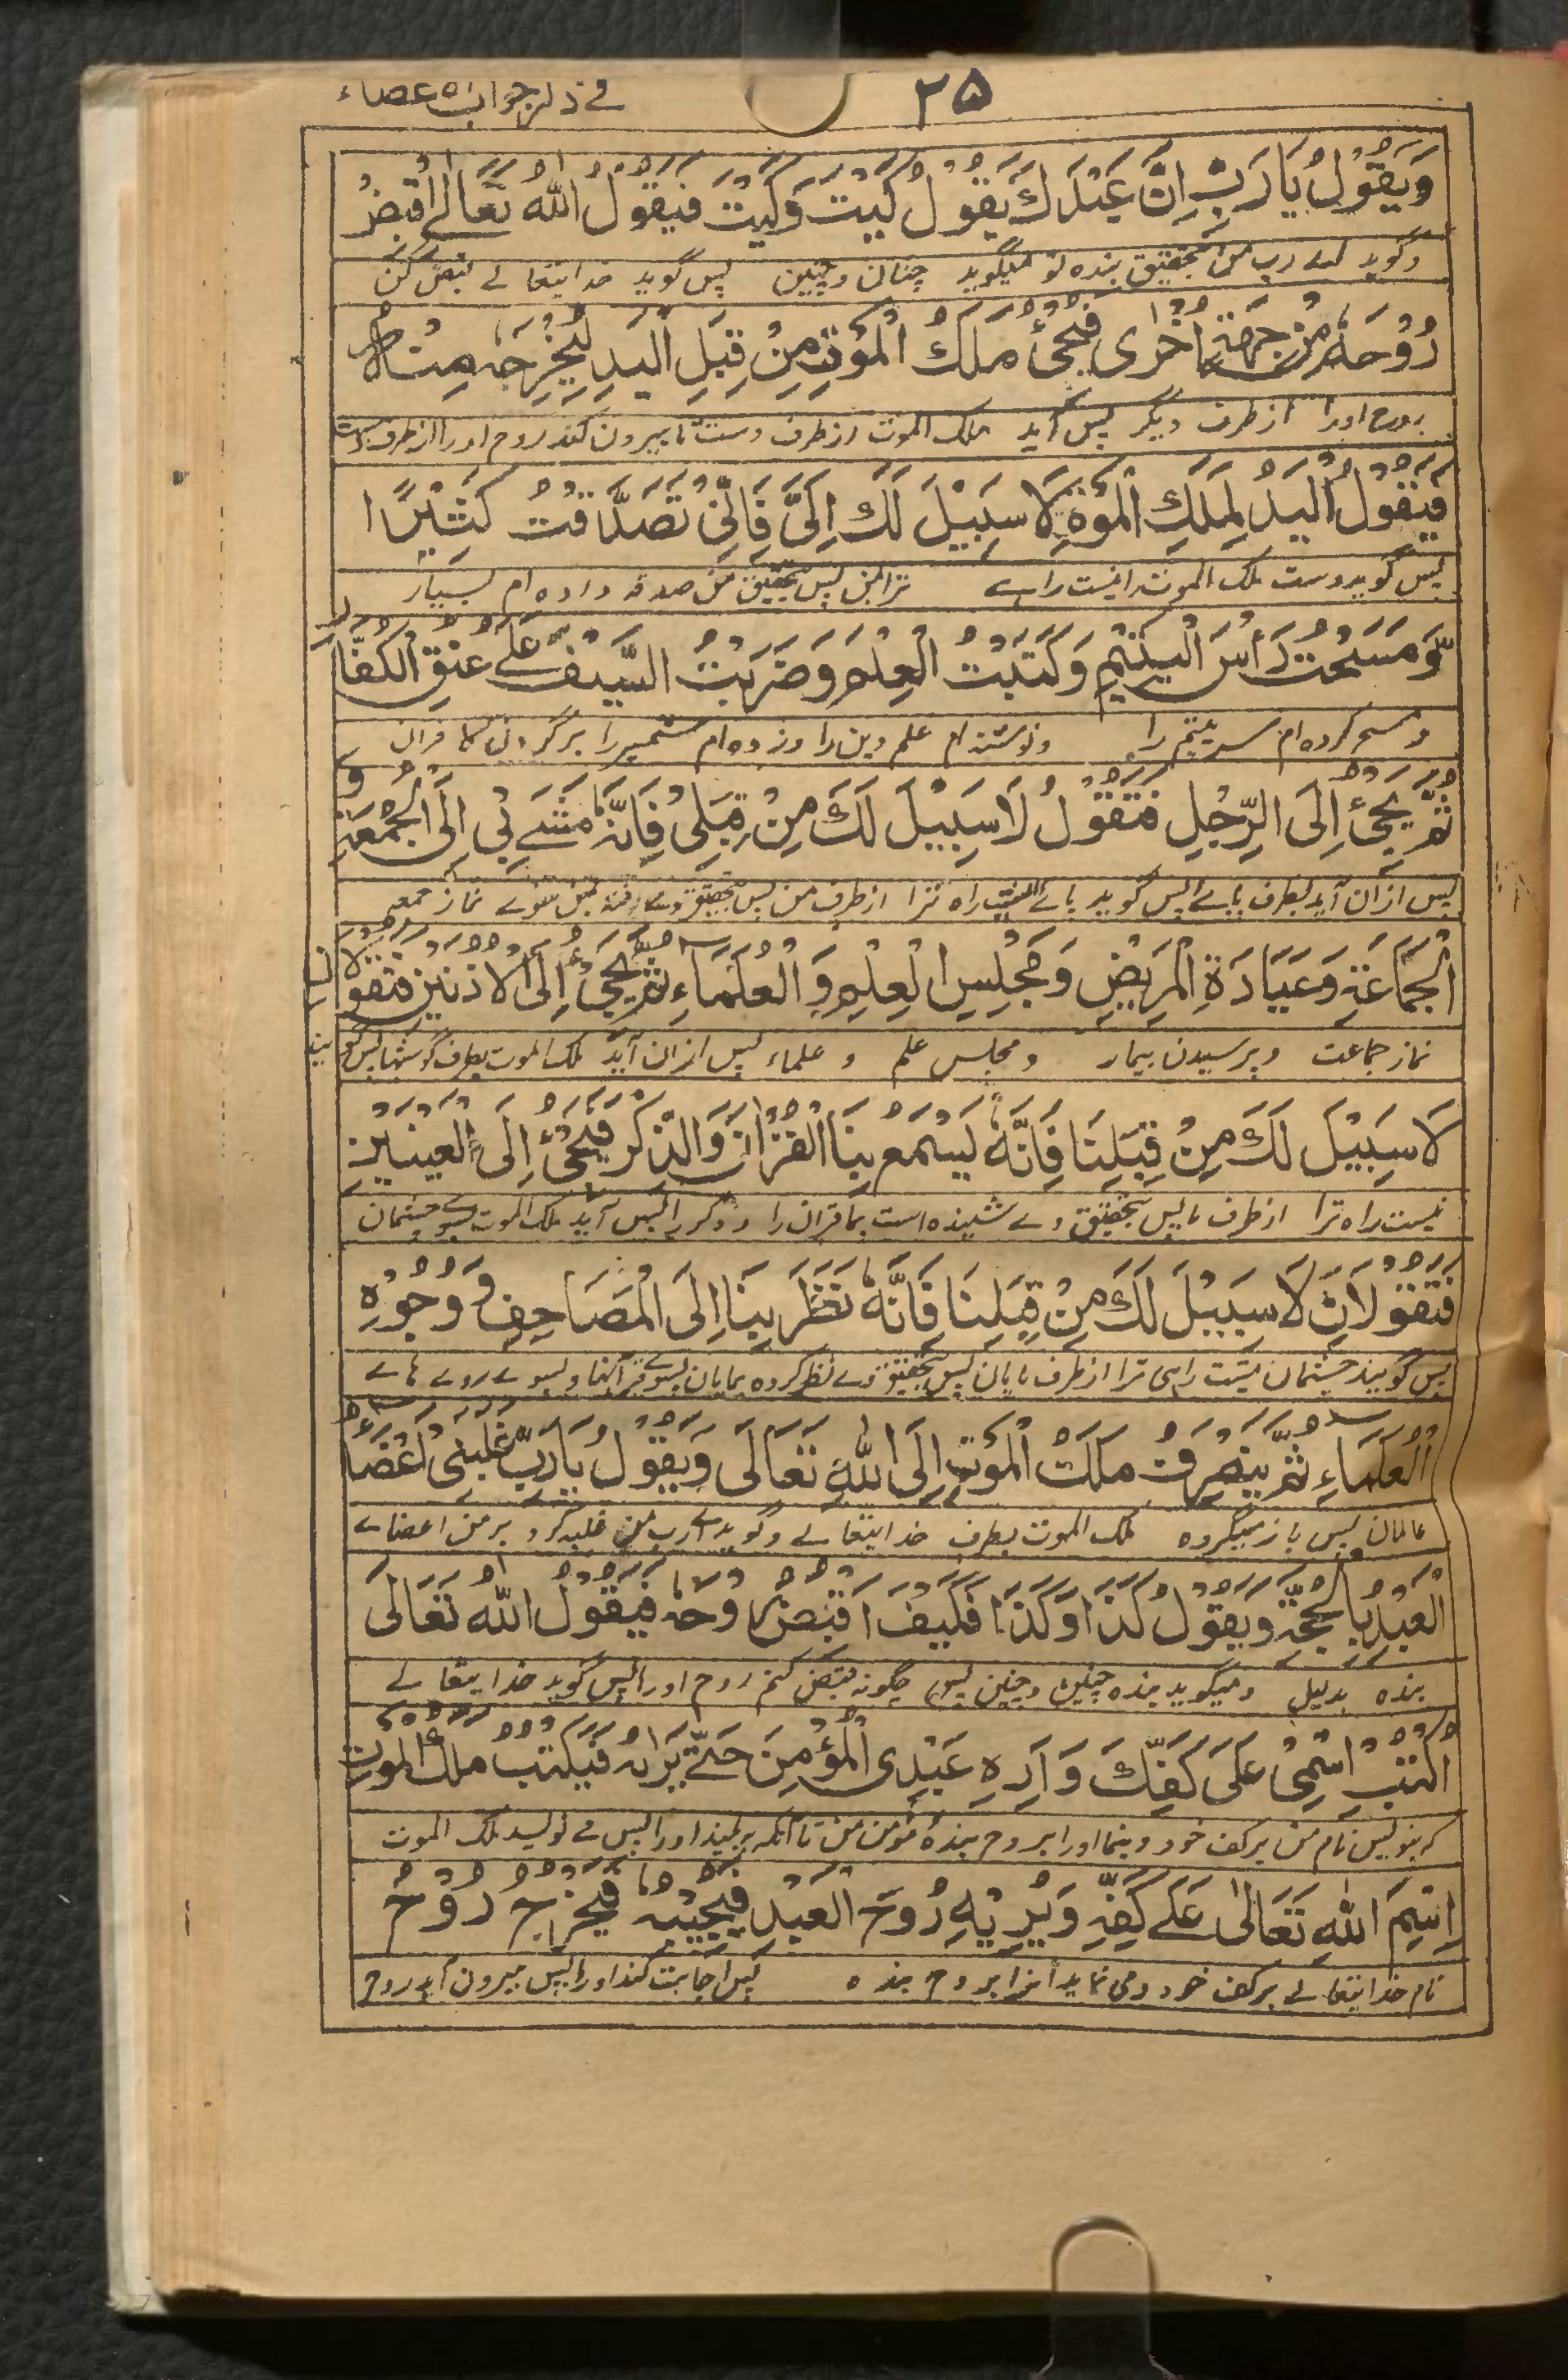 ۲۵ في ذكر جواب الاعضاء
وَيَقُوْلُ يَا رَبِّ اِنَّ عَبْدَكَ يَقُوْلُ كَيْتَ وَكَيْتَ فَيَقُوْلُ اللّٰهُ تَعَالٰى اقْبِضْ
وگوید اے رب من بتحقیق بنده تو میگوید چنان و چنین پس گوید خدایتعالے قبض کن
رُوْحَهٗ مِنْ جِهَةٍ اُخْرٰى فَيَجِئُ مَلَكُ الْمَوْتِ مِنْ قِبَلِ الْيَدِ لِيُخْرِجَهٗ مِنْهَا
روح اورا از طرف دیگر پس آید ملک الموت از طرف دست تا بیرون کند روح اورا از طرف دست
فَتَقُوْلُ الْيَدُ لِمَلَكِ الْمَوْتِ لَا سَبِيْلَ لَكَ اِلَيَّ فَاِنِّىْ تَصَدَّقْتُ كَثِيْرًا
پس گوید دست ملک الموت را نیست راہے ترا بمن پس بتحقیق من صدقه داده ام بسیار
وَّمَسَحْتُ رَأْسَ الْيَتِيْمِ وَكَتَبْتُ الْعِلْمَ وَضَرَبْتُ السَّيْفَ عَلٰى عُنُقِ الْكُفَّارِ
و مسح کرده ام سر یتیم را و نوشته ام علم دین را و زده ام شمشیر را بر گردن کافران
ثُمَّ يَجِئُ اِلَى الرِّجْلِ فَتَقُوْلُ لَا سَبِيْلَ لَكَ مِنْ قِبَلِىْ فَاِنَّهٗ مَشٰے بِىْ اِلَى الْجُمْعَةِ وَ
پس ازان آید بطرف پاے پس گوید پاے نیست راه ترا از طرف من پس بتحقیق وے رفته بمن سوے نماز جمعه
الْجَمَاعَةِ وَعِيَادَةِ الْمَرِيْضِ وَمَجْلِسِ الْعِلْمِ وَالْعُلَمَاءِ ثُمَّ يَجِئُ اِلَى الْاُذُنَيْنِ فَتَقُوْلَانِ
نماز جماعت و پرسیدن بیمار و مجلس علم و علماء پس ازان آید ملک الموت بطرف گوشها پس گویند
لَا سَبِيْلَ لَكَ مِنْ قِبَلِنَا فَاِنَّهٗ يَسْمَعُ بِنَا الْقُرْاٰنَ وَالذِّكْرَ فَيَجِئُ اِلَى الْعَيْنَيْنِ
نیست راه ترا از طرف ما پس بتحقیق وے شنیده است بما قرآن را و ذکر را پس آید ملک الموت بسوے چشمان
فَتَقُوْلَانِ لَا سَبِيْلَ لَكَ مِنْ قِبَلِنَا فَاِنَّهٗ نَظَرَ بِنَا اِلَى الْمَصَاحِفِ وَوُجُوْهِ
پس گویند چشمان نیست راهی ترا از طرف مایان پس بتحقیق وے نظر کرده بمایان بسوے قرآنها و بسوے روے هاے
الْعُلَمَاءِ ثُمَّ يَنْصَرِفُ مَلَكُ الْمَوْتِ اِلَى اللّٰهِ تَعَالٰى وَيَقُوْلُ يَا رَبِّ غَلَبَنِىْ اَعْضَاءُ
عالمان پس باز میگردد ملک الموت بطرف خدایتعالے و گوید اے رب من غلبه کرد بر من اعضاے
الْعَبْدِ بِالْحُجَّةِ وَيَقُوْلُ كَذَا وَكَذَا فَكَيْفَ اَقْبِضُ رُوْحَهٗ فَيَقُوْلُ اللّٰهُ تَعَالٰى
بنده بدلیل و میگوید بنده چنین و چنین پس چگونه قبض کنم روح اورا پس گوید خدایتعالے
اُكْتُبْ اِسْمِىْ عَلٰى كَفِّكَ وَاَرِهِ عَبْدِى الْمُؤْمِنَ حَتّٰے يَرَاهُ فَيَكْتُبُ مَلَكُ الْمَوْتِ
که بنویس نام من بر کف خود و بنما اورا بروح بنده مومن من تا آنکه به بیند اورا پس مے نویسد ملک الموت
اِسْمَ اللّٰهِ تَعَالٰى عَلٰے كَفِّهٖ وَيُرِيْهِ رُوْحَ الْعَبْدِ فَيُجِيْبُهٗ فَيَخْرُجُ رُوْحُ
نام خدایتعالے بر کف خود و می نماید آنرا بروح بنده پس اجابت کند اورا پس بیرون آید روح